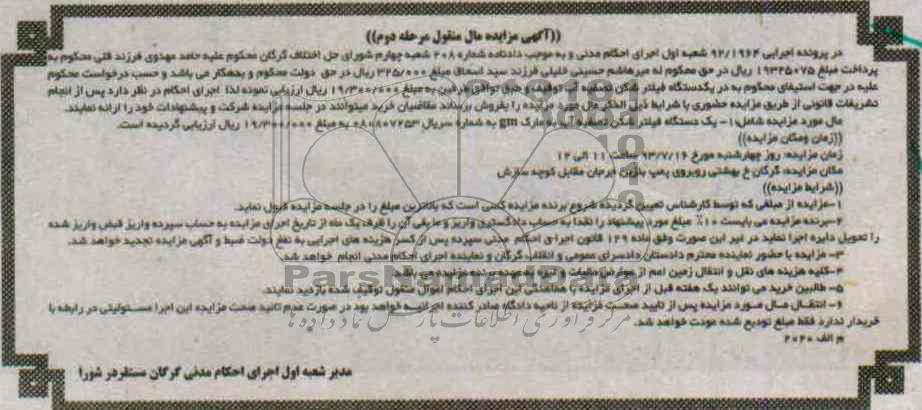 ((آگهی مزایده مال منقول مرحله دوم))
در پرونده اجرایی ۹۲/۱۹۶۴ شعبه اول اجرای احکام مدنی و به موجب دادنامه شماره ۲۰۸ شعبه چهارم شورای حل اختلاف گرگان محکوم علیه حامد مهدوی فرزند قلی محکوم به
پرداخت مبلغ ۱۹۳۲۵۰۷۵ ریال در حق محکوم له میرهاشم حسینی خلیلی فرزند سید اسحاق مبلغ ۳۲۵/۰۰۰ ریال در حق دولت محکوم و بدهکار می باشد و حسب درخواست محکوم
علیه در جهت استیفای محکوم به در یکدستگاه فیلتر شکن تصفیه آب توقیف و طبق توافق طرفین به مبلغ ۱۹/۳۰۰/۰۰۰ ریال ارزیابی نموده لذا اجرای احکام در نظر دارد پس از انجام
تشریفات قانونی از طریق مزایده حضوری با شرایط ذیل الذکر مال مورد مزایده را بفروش برساند متقاضیان خرید میتوانند در جلسه مزایده شرکت و پیشنهادات خود را ارائه نمایند.
مال مورد مزایده شامل: ۱- یک دستگاه فیلتر شکن تصفیه آب به مارک gm به شماره سریال ۰۸۰۸۰۷۲۵۳ به مبلغ ۱۹/۳۰۰/۰۰۰ ریال ارزیابی گردیده است.
((زمان ومکان مزایده))
زمان مزایده: روز چهارشنبه مورخ ۹۳/۷/۱۶ ساعت ۱۱ الی ۱۲
مکان مزایده: گرگان خ بهشتی روبروی پمپ بنزین جرجان مقابل کوچه سازش
((شرایط مزایده))
۱-مزایده از مبلغی که توسط کارشناس تعیین گردیده شروع برنده مزایده کسی است که بالاترین مبلغ را در جلسه مزایده قبول نماید.
۲-برنده مزایده می بایست ۱۰٪ مبلغ مورد پیشنهاد را نقدا به حساب دادگستری واریز و مابقی آن را ظرف یک ماه از تاریخ اجرای مزایده به حساب سپرده واریز قبض واریز شده
را تحویل دایره اجرا نماید در غیر این صورت وفق ماده ۱۲۹ قانون اجرای احکام مدنی سپرده پس از کسر هزینه های اجرایی به نفع دولت ضبط و آگهی مزایده تجدید خواهد شد.
۳- مزایده با حضور نماینده محترم دادستان دادسرای عمومی و انقلاب گرگان و نماینده اجرای احکام مدنی انجام خواهد شد.
۴-کلیه هزینه های نقل و انتقال زمین اعم از عوارض مالیات و غیره به عهده برنده مزایده می باشد.
۵- طالبین خرید می توانند یک هفته قبل از اجرای مزایده با هماهنگی این اجرای احکام اموال منقول توقیف شده بازدید نمایند.
۶- انتقال مال مورد مزایده پس از تایید صحت مزایده از ناحیه دادگاه صادر کننده اجرائیه خواهد بود در صورت عدم تائید صحت مزایده این اجرا مسئولیتی در رابطه با
خریدار ندارد فقط مبلغ تودیع شده عودت خواهد شد.
م الف ۲۰۲۰
مدیر شعبه اول اجرای احکام مدنی گرگان مستقر در شورا
ParsNamadData
مرکز فرآوری اطلاعات پارس نماد داده ها